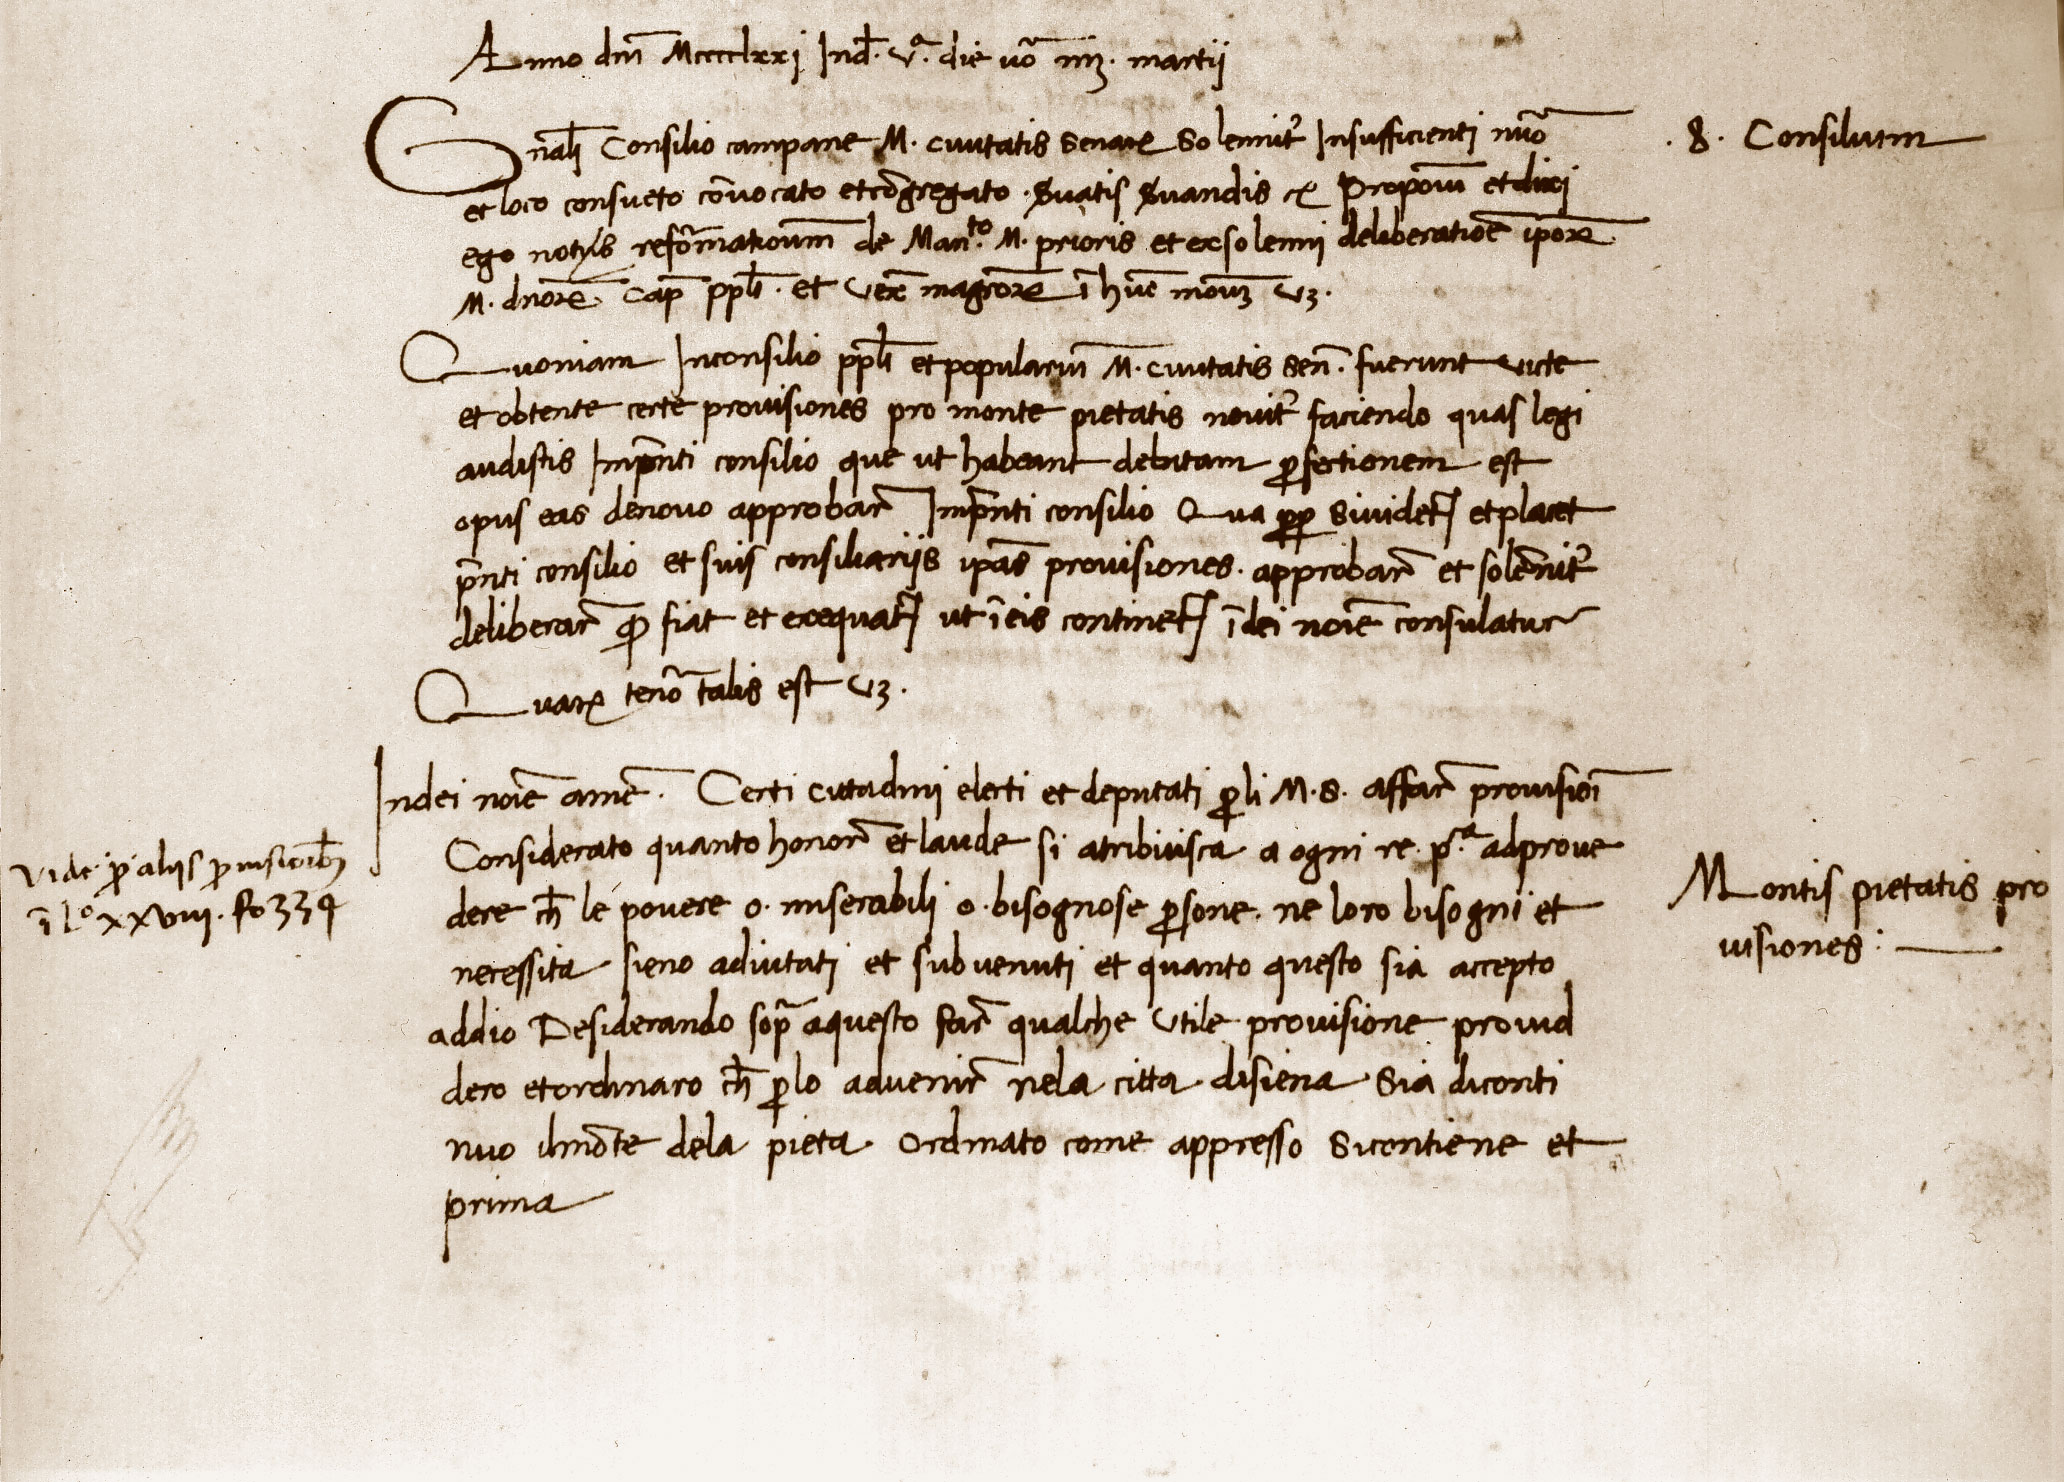 Anno dm̄ Mcccclxxi Ind̄. vª. die vō iiij. martij
Gn̄ali Consilio campane M. civitatis Senar̄ Solennit̄ Insufficienti nūo
.8. Consilium
et loco consueto cōnvocato et cōgregato. Svatis Svandis &c Proponim̄ et dixi
ego notus reformationum de Manto. M. prioris et ex solenni deliberatiōe ipor̄
M. dnor̄. Cap̄ ppl̄i. et Vex̄ magror̄ ī hūc modum vz.
Quoniam Inconsilio ppl̄i et popularium M. civitatis Sen̄. fuerunt victe
et obtente certe provisiones pro monte pietatis novit̄ faciendo quas legi
audistis Inpn̄ti consilio que ut habeant debitam ꝑfectionem est
opus eas denovo approbar̄ Inpn̄ti consilio Qua ꝓp Sividet̄ et placet
pn̄ti consilio et suis consiliariis ipas̄ provisiones. approbar̄ et solēnit̄
deliberar̄ ꝙ fiat et exequat̄ ut ī eis continet̄ ī dei noīe consulatur
Quar̄ tenor̄ talis est vz.
Indei noīe amē. Certi cittadini electi et deputati ꝑli M.S. affar̄ provisioī
Considerato quanto honor̄ et laude si atribuisca a ogni re. pª. ad prove
dere ch̄ le povere o. miserabili o. bisognose ꝑsone. ne loro bisogni et
necessita sieno adiutati et subvenuti et quanto questo sia accepto
addio Desiderando sop̄ aquesto far̄ qualche utile provisione provid
dero et ordinaro ch̄ ꝑlo advenir̄ nela citta disiena Sia diconti
nuo ilmōte dela pieta ordinato come appresso Sicontiene et
prima
Vide ꝑ aliis provisionibus
ī Lº xxviiij. fo 339
Montis pietatis pro
visiones: